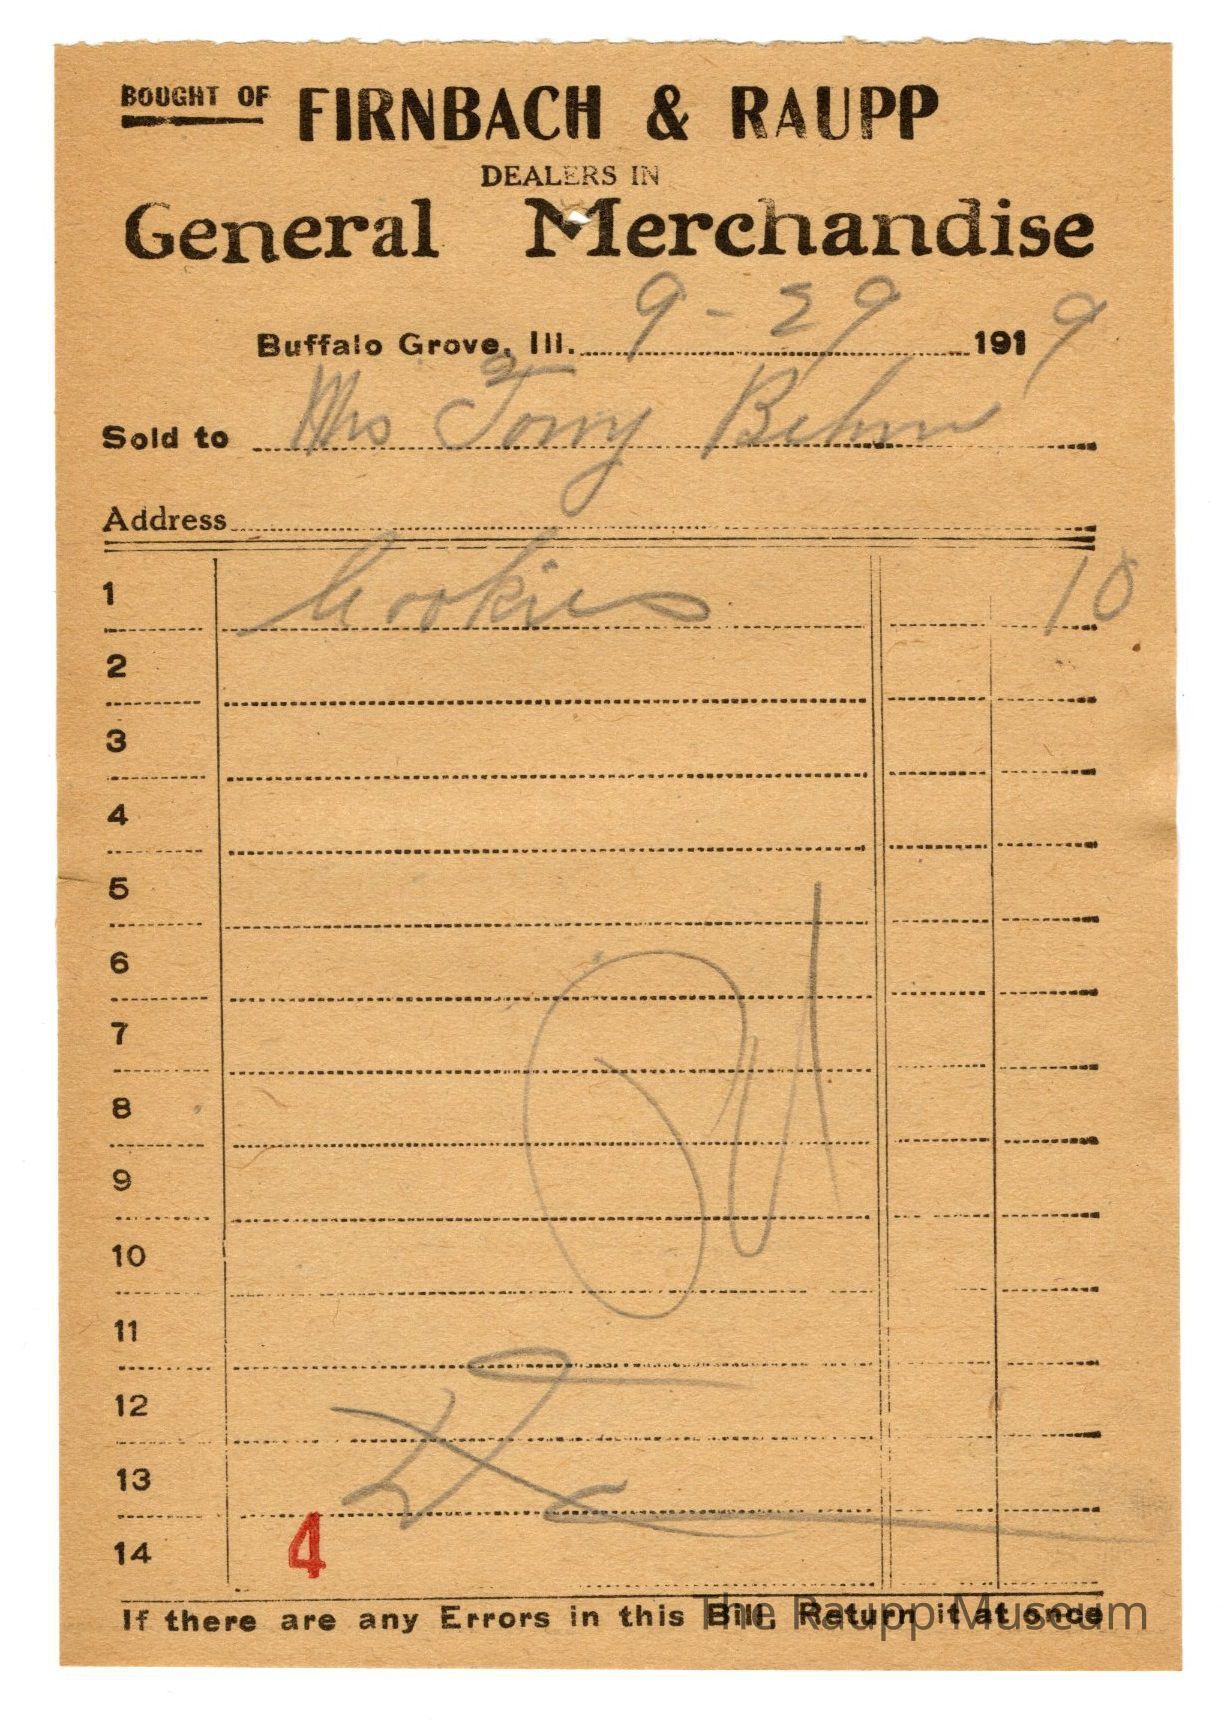 BOUGHT OF FIRNBACH & RAUPP
DEALERS IN
General Merchandise
Buffalo Grove, Ill. 9-29 1919
Sold to Mrs Tony Behm
Address
1 Cookies 10
2
3
4
5
6
7
8
9
10
11
12
13
14 4
If there are any Errors in this Bill, Return it at once
The Raupp Museum